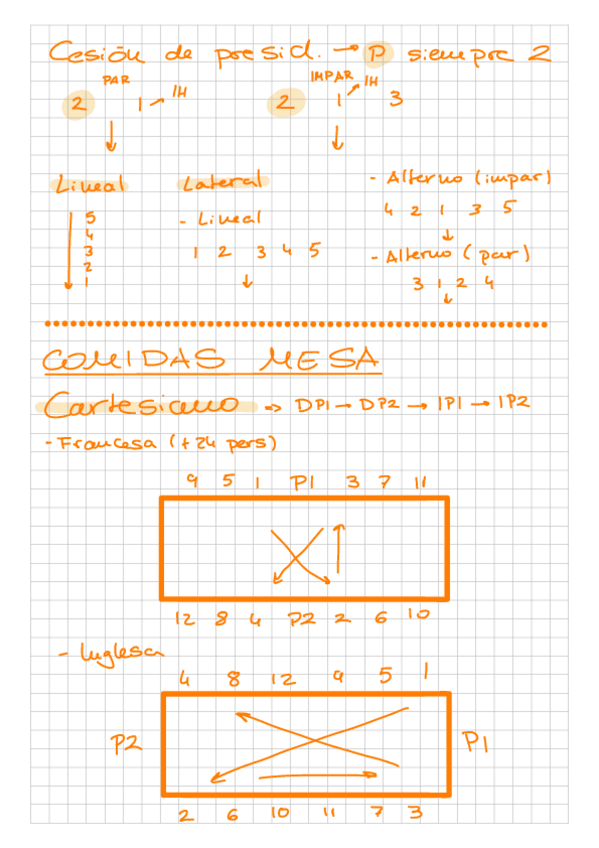 Cesión de presid. → P siempre 2
PAR IMPAR
2 1 → IH 2 1 → IH 3
Lineal Lateral - Alterno (impar)
5 - Lineal 4 2 1 3 5
4
3 1 2 3 4 5 - Alterno (par)
2 3 1 2 4
1
COMIDAS MESA
Cartesiano => DP1 → DP2 → IP1 → IP2
- Francesa (+24 pers)
9 5 1 P1 3 7 11
12 8 4 P2 2 6 10
- Inglesa
4 8 12 9 5 1
P2 P1
2 6 10 11 7 3